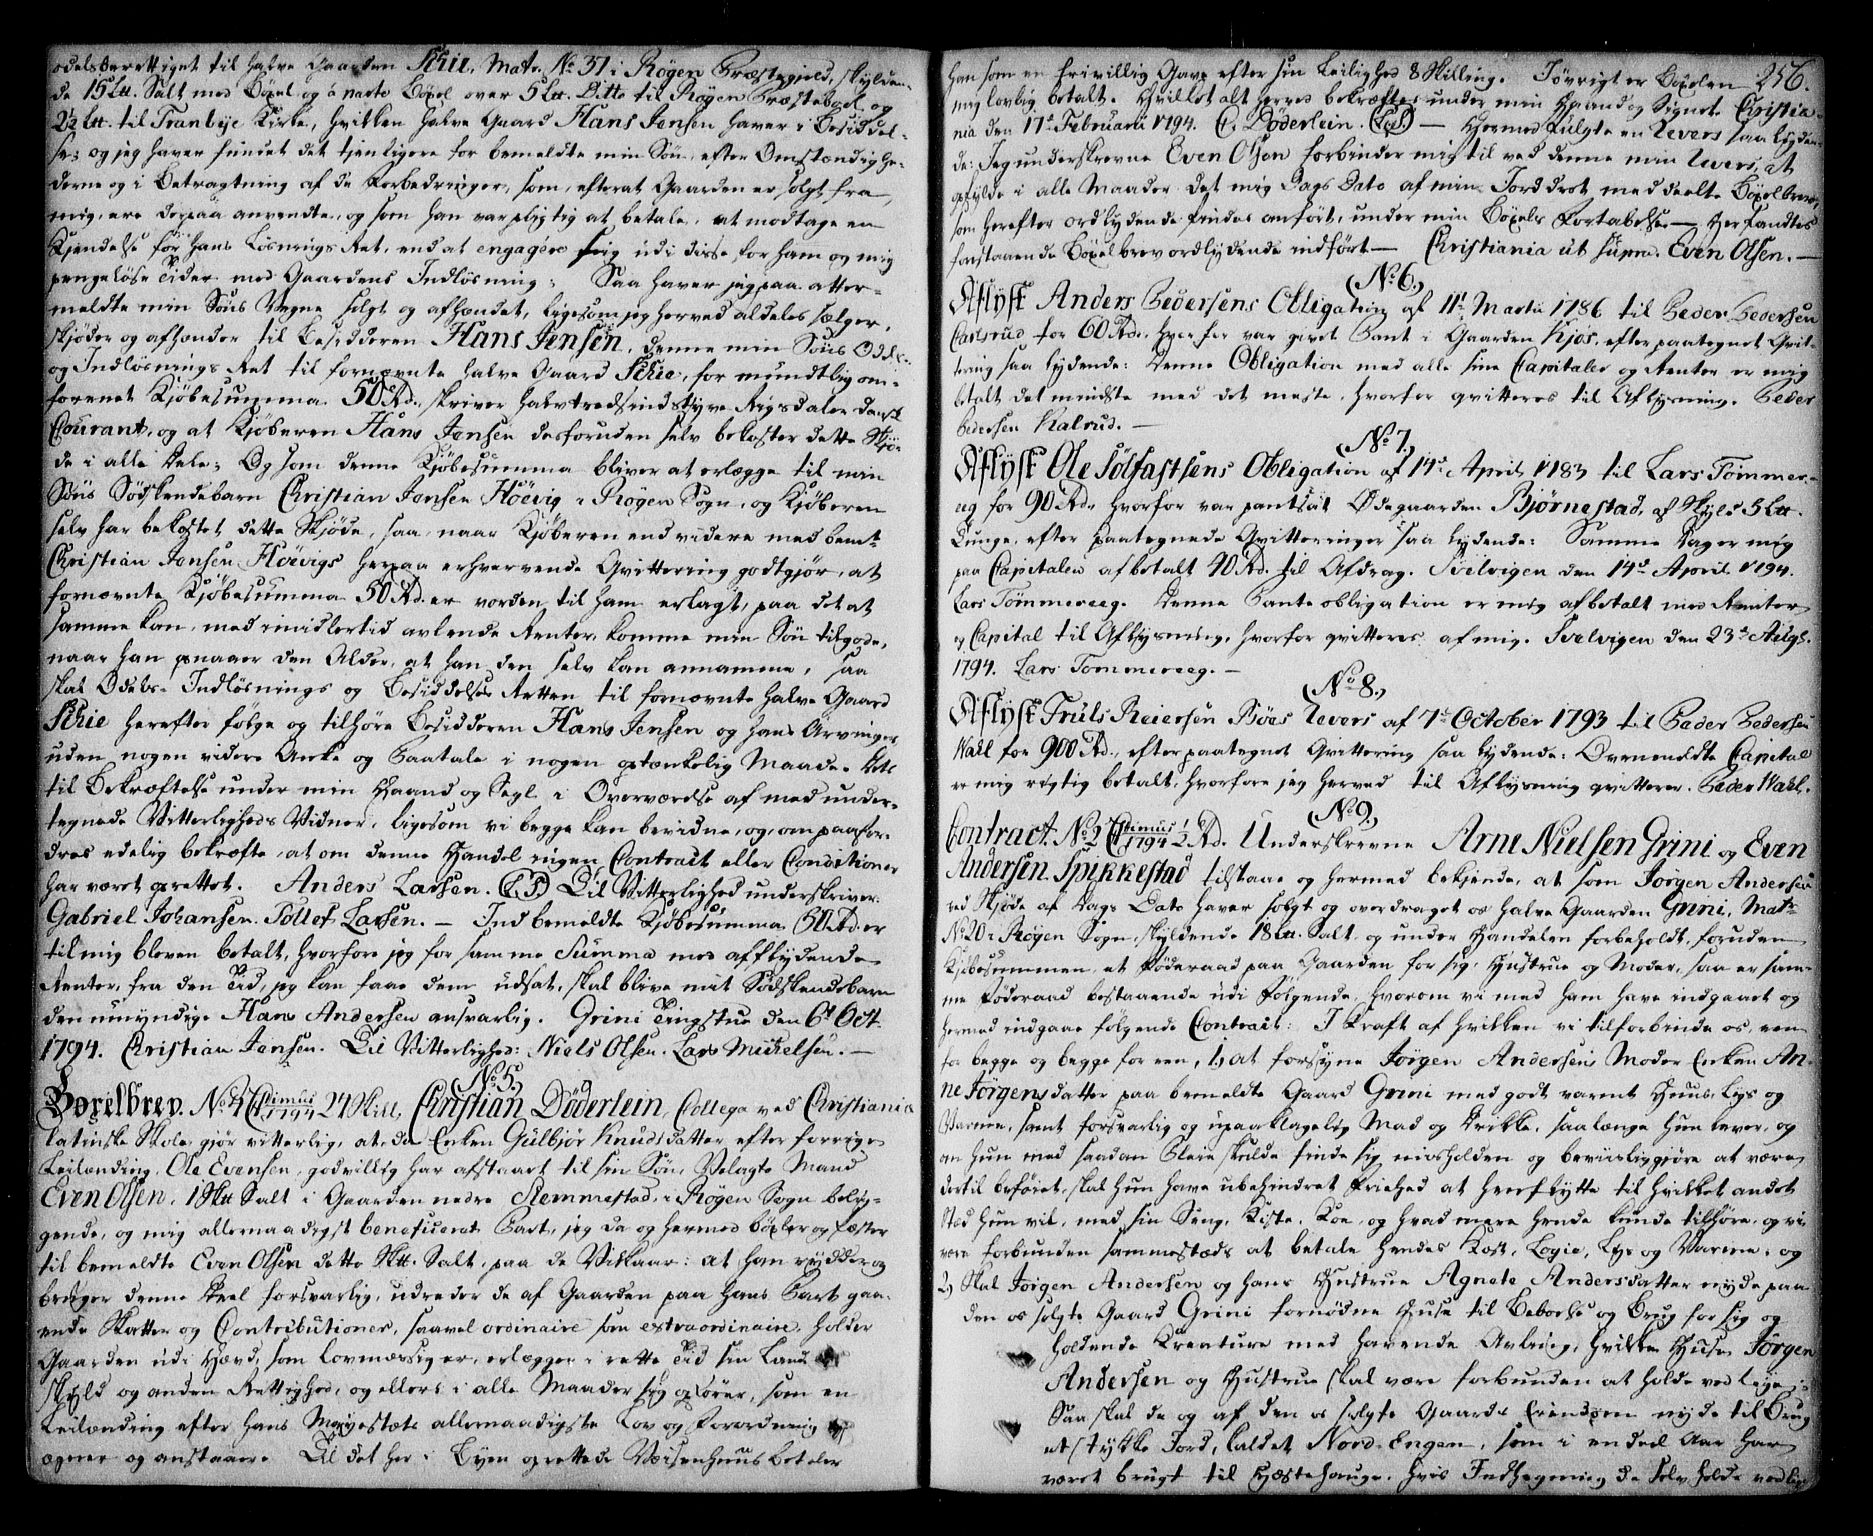 odelsberettiget til halve Gaarden Schie, Matr. No 37 i Røgen Præstegield, skylden-
de 15 Ltt. Salt med Böxel og á parte Böxel over 5 Ltt. Ditto til Røgen Præsteboel, og
2½ Ltt. til Tranbye Kirke, hvilken halve Gaard Hans Jensen haver i Besiddel-
se; og jeg haver fundet det tienligere for bemeldte min Sön, efter Omstændighe-
derne og i Betragtning af de Forbedringer, som, efterat Gaarden er solgt fra
mig, ere derpaa anvendte, og som han var pligtig at betale, at modtage en
Kjendelse før hans Løsnings Ret, end at engagére sig udi disse for ham og mig
pengeløse Tider med Gaardens Indløsning; Saa haver jeg paa atter-
meldte min Söns Vegne solgt og afhændet, ligesom jeg herved aldeles sælger,
skjøder og afhænder til Besidderen Hans Jensen, denne min Söns Odels-
og Indløsnings Ret til fornevnte halve Gaard Schie, for mundtlig om-
forenet Kjøbesumma 50 Rd., skriver halvtredsindstyve Rigsdaler dansk
Courant, og at Kjøberen Hans Jensen desforuden selv bekoster dette Skjø-
de i alle Dele; Og som denne Kjøbesumma bliver at erlægge til min
Söns Sødskendebarn Christian Jensen Höevig i Røgen Sogn, og Kjøberen
selv har bekostet dette Skjøde, saa, naar Kjøberen end videre med bemt.
Christian Jensen Høevigs herpaa erhvervende Qvittering godtgjør, at
fornævnte Kjøbesumma 50 Rd. er vorden til ham erlagt, paa det at
samme kan, med imidlertid avlende Renter, komme min Sön tilgode,
naar han opnaaer den Alder, at han den selv kan annamme, saa
skal Odels- Indløsnings og Besiddelses Retten til fornævnte halve Gaard
Schie herefter følge og tilhøre Besidderen Hans Jensen og hans Arvinger
uden nogen videre Anke og Paatale i nogen optænkelig Maade. Det
til Bekræftelse under min Haand og Segl i Overværelse af med under-
tegnede Vitterligheds Vidner, ligesom vi begge kan bevidne, og, om paafor-
dres edelig bekræfte, at om denne Handel ingen Contract eller Conditioner
har været oprettet. Anders Larsen. (L.S.) Til Vitterlighed underskriver:
Gabriel Johansen. Tollef Larsen. — Indbemeldte Kjøbesumma 50 Rd. er
til mig bleven betalt, hvorfore jeg for samme Summa med afflydende
Renter, fra den Tid, jeg kan faae dem udsat, skal blive mit Sødskendebarn
den umyndige Hans Andersen ansvarlig. Grini Tingstue den 6t Oct.
1794. Christian Jensen. Til Vitterlighed: Niels Olsen. Lars Mickelsen. —
(No. 5.)
Boxelbrev. No 4 Ctimus 1794 24 Skill. Christian Döderlein, Collega ved Christiania
latinske Skole, gjør vitterlig, at, da Enken Gulbjør Knudsdatter efter forrige
Leilænding, Ole Evensen, godvillig har afstaaet til sin Sön, Velagte Mand
Even Olsen, 1 Sktt Salt i Gaarden nedre Remmestad, i Røgen Sogn belig-
gende, og mig allernaadigst beneficeret Part, jeg da og hermed böxler og fæster
til bemeldte Even Olsen dette Sktt. Salt, paa de Vilkaar: at han rydder og
bruger denne Deel forsvarlig, udreder de af Gaarden paa hans Part gaa-
ende Skatter og Contributioner, saavel ordinaire som extraordinaire, holder
Gaarden udi Hævd, som lovmæssig er, erlægger i rette Tid sin Land-
skyld og anden Rettighed, og ellers i alle Maader sig opfører, som en
Leilænding efter hans Mayestæts allernaadigste Lov og Forordning
egner og anstaaer. Til det her i Byen oprettede Vaisenhuus betaler
256.
han som en frivillig Gave efter sin Leilighed 8 Skilling. Iøvrigt er Boxelen
mig lovlig betalt. Hvilket alt herved bekræftes under min Haand og Signet. Christia-
nia den 17de Februarii 1794. C. Döderlein. (L.S.) — Hermed fulgte en Revers saa lyden-
de: Jeg underskrevne Even Olsen forbinder mig til ved denne min Revers, at
opfylde i alle Maader det mig Dags Dato af min Jorddrot meddeelte Böxelbrev,
som herefter ordlydende findes anført, under min Böxels Fortabelse — Her fandtes
foranstaaende Böxelbrev ordlydende indført — Christiania ut supra. Even Olsen. —
(No. 6.)
Aflyst Anders Pedersens Obligation af 11t Martii 1786 til Peder Pedersen
Carlsrud for 60 Rd., hvorfor var givet Pant i Gaarden Kjøs, efter paategnet Qvit-
tering saa lydende: Denne Obligation med alle sine Capitaler og Renter er mig
betalt det mindste med det meste, hvorfor qvitteres til Aflysning. Peder
Pedersen Kalrud. —
(No. 7.)
Aflyst Ole Solfastsens Obligation af 14de April 1783 til Lars Tømmer-
eeg for 90 Rd., hvorfor var pantsat Ødegaarden Bjørnestad, af Skyld 5 Ltt.
Tunge, efter paategnede Qvitteringer saa lydende: Samme Dag er mig
paa Capitalen afbetalt 40 Rd. til Afdrag. Svelvigen den 14de April 1794.
Lars Tømmereeg. Denne Panteobligation er mig afbetalt med Renter
og Capital til Aflysning, hvorfor qvitteres af mig. Svelvigen den 23de Augs.
1794. Lars Tommereeg. —
(No. 8.)
Aflyst Truls Reiersen Böes Revers af 7de October 1793 til Peder Pedersen
Wahl for 900 Rd., efter paategnet Qvittering saa lydende: Ovenmeldte Capital
er mig rigtig betalt, hvorfore jeg herved til Aflysning qvitterer. Peder Wahl.
(No. 9.)
Contract. No 2 Ctimus 1794 ½ Rd. Underskrevne Arne Nielsen Grini og Even
Andersen Spikkestad tilstaae og hermed bekjende, at som Jorgen Andersen
ved Skjøde af Dags Dato haver solgt og overdraget os halve Gaarden Grini, Matr
No 20 i Røgen Sogn, skyldende 18 Ltt. Salt, og under Handelen forbeholdt, foruden
Kjøbesummen, et Föderaad paa Gaarden for sig, Hustrue og Moder, saa er sam-
me Föderaad bestaaende udi Følgende, hvorom vi med ham have indgaaet og
hermed indgaae følgende Contract: I Kraft af hvilken vi tilforbinde os, een
for begge og begge for een, 1) at forsyne Jørgen Andersens Moder Enken An-
ne Jörgensdatter paa bemeldte Gaard Grini med godt varmt Huus, Lys og
Varme, samt forsvarlig og upaaklagelig Mad og Drikke, saa længe hun lever, og
om hun med saadan Pleie skulde finde sig misholden og beviisliggjøre at være
dertil beføiet, skal hun have ubehindret Friehed at henflytte til hvilket andet
Sted hun vil, med sin Seng, Kiste, Koe, og hvad mere hende kunde tilhøre, og vi
være forbunden sammesteds at betale hendes Kost, Logie, Lys og Varme; og
2) Skal Jorgen Andersen og hans Hustrue Agnete Andersdatter nyde paa
den os solgte Gaard Grini fornødne Huse til Beboelse og Brug for sig og
holdende Kreature med havende Avling, hvilke Huse Jörgen
Andersen og Hustrue skal være forbunden at holde ved lige;
Saa skal de og af den os solgte Gaards Eiendom nyde til Brug
et stykke Jord, kaldet Nord-Engen, som i en deel Aar har
været brugt til Hæstehauge, hvis Indhegning de selv holde ved lige